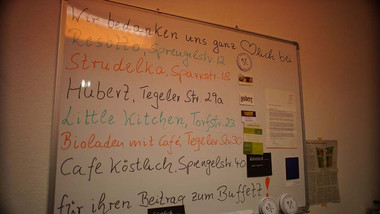 Wir bedanken uns ganz ♡lich bei
Resotto, Sprengelstr. 12
Strudelka, Sparrstr. 18
Hubert, Tegeler Str. 29a
Little Kitchen, Torfstr. 23
Bioladen mit Café, Tegeler Str. 30
Cafe Köstlich, Sprengelstr. 40
für ihren Beitrag zum Buffett!